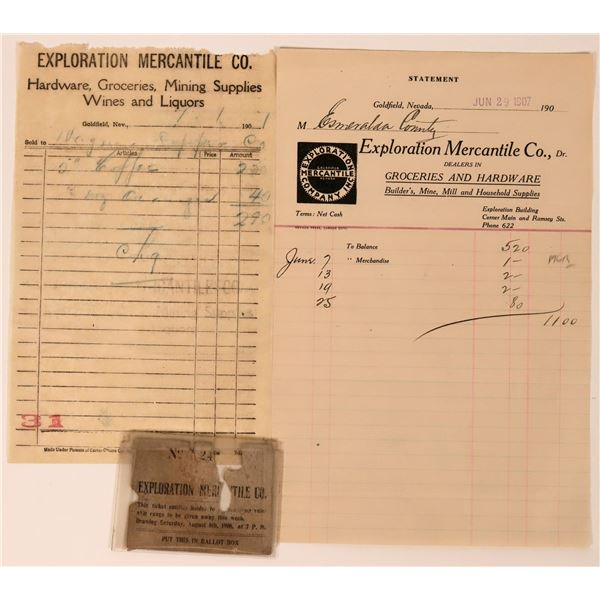 EXPLORATION MERCANTILE CO.
Hardware, Groceries, Mining Supplies
Wines and Liquors
Goldfield, Nev., 7 - 1 1901
Sold to
Articles Price Amount
5# Coffee 2 50
40
2 90
Chg
31
Made Under Patents of Carter-Crume Co.
STATEMENT
Goldfield, Nevada, JUN 29 1907 190
M Esmeralda County
EXPLORATION MERCANTILE COMPANY INC.
GOLDFIELD NEVADA
Exploration Mercantile Co., Dr.
DEALERS IN
GROCERIES AND HARDWARE
Builder's, Mine, Mill and Household Supplies
Terms: Net Cash
Exploration Building
Corner Main and Ramsey Sts.
Phone 622
To Balance 5 20
June 7 " Merchandise 1 -
13 2 -
19 2 -
25 80
11 00
No
EXPLORATION MERCANTILE CO.
This ticket entitles holder to
range to be given away this week.
Drawing Saturday, August 4th, 1906, at 7 P. M.
PUT THIS IN BALLOT BOX